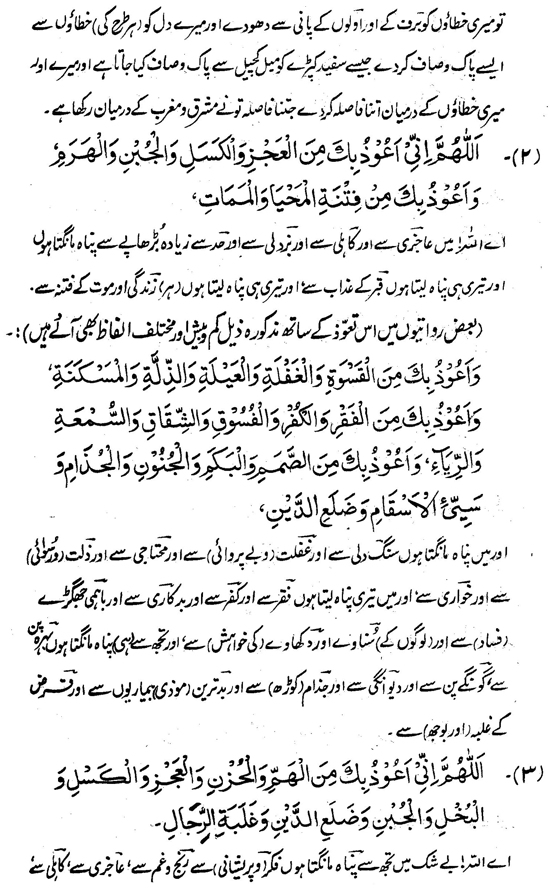 تو میری خطاؤں کو برف کے اور اولوں کے پانی سے دھو دے اور میرے دل کو (ہر طرح کی) خطاؤں سے
ایسے پاک و صاف کر دے جیسے سفید کپڑے کو میل کچیل سے پاک و صاف کیا جاتا ہے اور میرے اور
میری خطاؤں کے درمیان اتنا فاصلہ کر دے جتنا فاصلہ تو نے مشرق و مغرب کے درمیان رکھا ہے۔
(۲)۔ اَللّٰهُمَّ اِنِّیْ اَعُوْذُ بِكَ مِنَ الْعَجْزِ وَالْكَسَلِ وَالْجُبْنِ وَالْهَرَمِ،
وَاَعُوْذُ بِكَ مِنْ فِتْنَةِ الْمَحْيَا وَالْمَمَاتِ،
اے اللہ! میں عاجزی سے اور کاہلی سے اور بزدلی سے اور حد سے زیادہ بڑھاپے سے پناہ مانگتا ہوں
اور تیری ہی پناہ لیتا ہوں قبر کے عذاب سے، اور تیری ہی پناہ لیتا ہوں (ہر) زندگی اور موت کے فتنہ سے۔
(بعض روایتوں میں اس تعوّذ کے ساتھ مذکورہ ذیل کم و بیش اور مختلف الفاظ بھی آئے ہیں):۔
وَاَعُوْذُ بِكَ مِنَ الْقَسْوَةِ وَالْغَفْلَةِ وَالْعَيْلَةِ وَالذِّلَّةِ وَالْمَسْكَنَةِ،
وَاَعُوْذُ بِكَ مِنَ الْفَقْرِ وَالْكُفْرِ وَالْفُسُوْقِ وَالشِّقَاقِ وَالسُّمْعَةِ
وَالرِّيَآءِ، وَاَعُوْذُ بِكَ مِنَ الصَّمَمِ وَالْبَكَمِ وَالْجُنُوْنِ وَالْجُذَامِ وَ
سَيِّیءِ الْاَسْقَامِ وَضَلَعِ الدَّيْنِ،
اور میں پناہ مانگتا ہوں سنگ دلی سے اور غفلت (و بے پروائی) سے اور محتاجی سے اور ذلت (و رسوائی)
سے اور خواری سے، اور میں تیری پناہ لیتا ہوں فقر سے اور کفر سے اور بدکاری سے اور باہمی جھگڑے
(فساد) سے اور (لوگوں کے) سُناوے اور دکھاوے (کی خواہش) سے، اور تجھ سے (ہی) پناہ مانگتا ہوں بہرہ پن
سے، گونگے پن سے اور دیوانگی سے اور جذام (کوڑھ) سے اور بدترین (موذی) بیماریوں سے اور قرض
کے غلبہ (اور بوجھ) سے۔
(۳)۔ اَللّٰهُمَّ اِنِّیْ اَعُوْذُ بِكَ مِنَ الْهَمِّ وَالْحُزْنِ وَالْعَجْزِ وَالْكَسْلِ وَ
الْبُخْلِ وَالْجُبْنِ وَضَلَعِ الدَّيْنِ وَغَلَبَةِ الرِّجَالِ۔
اے اللہ! بے شک میں تجھ سے پناہ مانگتا ہوں فکر (و پریشانی) سے رنج و غم سے، عاجزی سے، کاہلی سے،